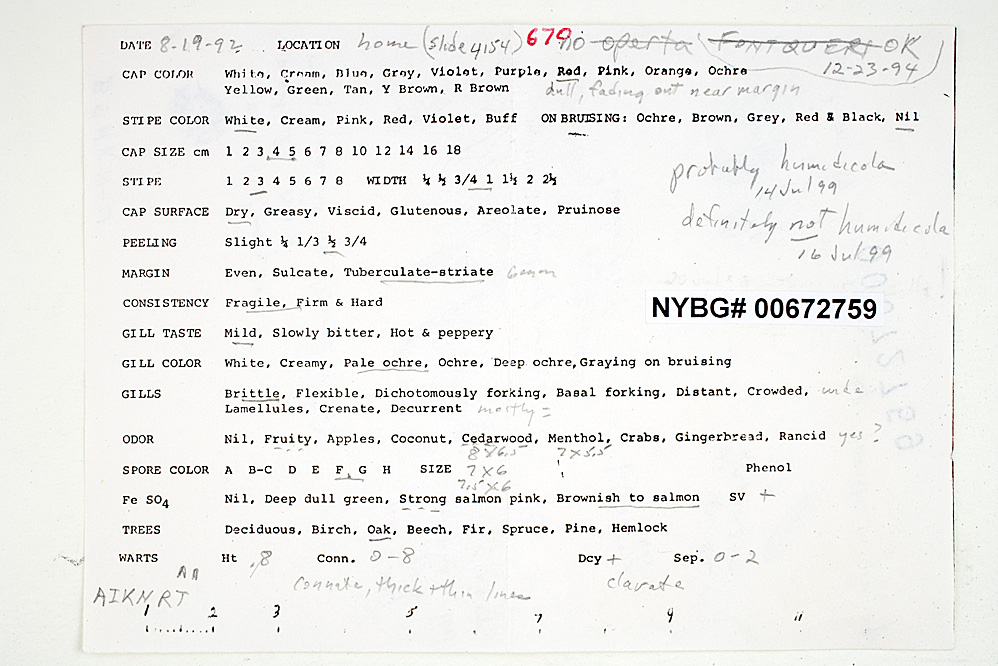 DATE 8-19-92 LOCATION home (slide 4154) 679 no operta FONTQUERI OK
12-23-94
CAP COLOR White, Cream, Blue, Grey, Violet, Purple, Red, Pink, Orange, Ochre
Yellow, Green, Tan, Y Brown, R Brown dull, fading out near margin
STIPE COLOR White, Cream, Pink, Red, Violet, Buff ON BRUISING: Ochre, Brown, Grey, Red & Black, Nil
CAP SIZE cm 1 2 3 4 5 6 7 8 10 12 14 16 18
probably humidicola
14 Jul 99
STIPE 1 2 3 4 5 6 7 8 WIDTH ¼ ½ 3/4 1 1½ 2 2½
CAP SURFACE Dry, Greasy, Viscid, Glutenous, Areolate, Pruinose
definitely not humidicola
16 Jul 99
PEELING Slight ¼ 1/3 ½ 3/4
MARGIN Even, Sulcate, Tuberculate-striate
CONSISTENCY Fragile, Firm & Hard
NYBG# 00672759
GILL TASTE Mild, Slowly bitter, Hot & peppery
GILL COLOR White, Creamy, Pale ochre, Ochre, Deep ochre, Graying on bruising
GILLS Brittle, Flexible, Dichotomously forking, Basal forking, Distant, Crowded,
Lamellules, Crenate, Decurrent mostly =
ODOR Nil, Fruity, Apples, Coconut, Cedarwood, Menthol, Crabs, Gingerbread, Rancid yes?
8 x 6.5 7 x 5.5
SPORE COLOR A B-C D E F G H SIZE 7 x 6 Phenol
7.5 x 6
Fe SO4 Nil, Deep dull green, Strong salmon pink, Brownish to salmon SV +
TREES Deciduous, Birch, Oak, Beech, Fir, Spruce, Pine, Hemlock
WARTS Ht .8 Conn. 0-8 Dcy + Sep. 0-2
connate, thick + thin lines clavate
AIKNRT
1 2 3 5 7 9 11